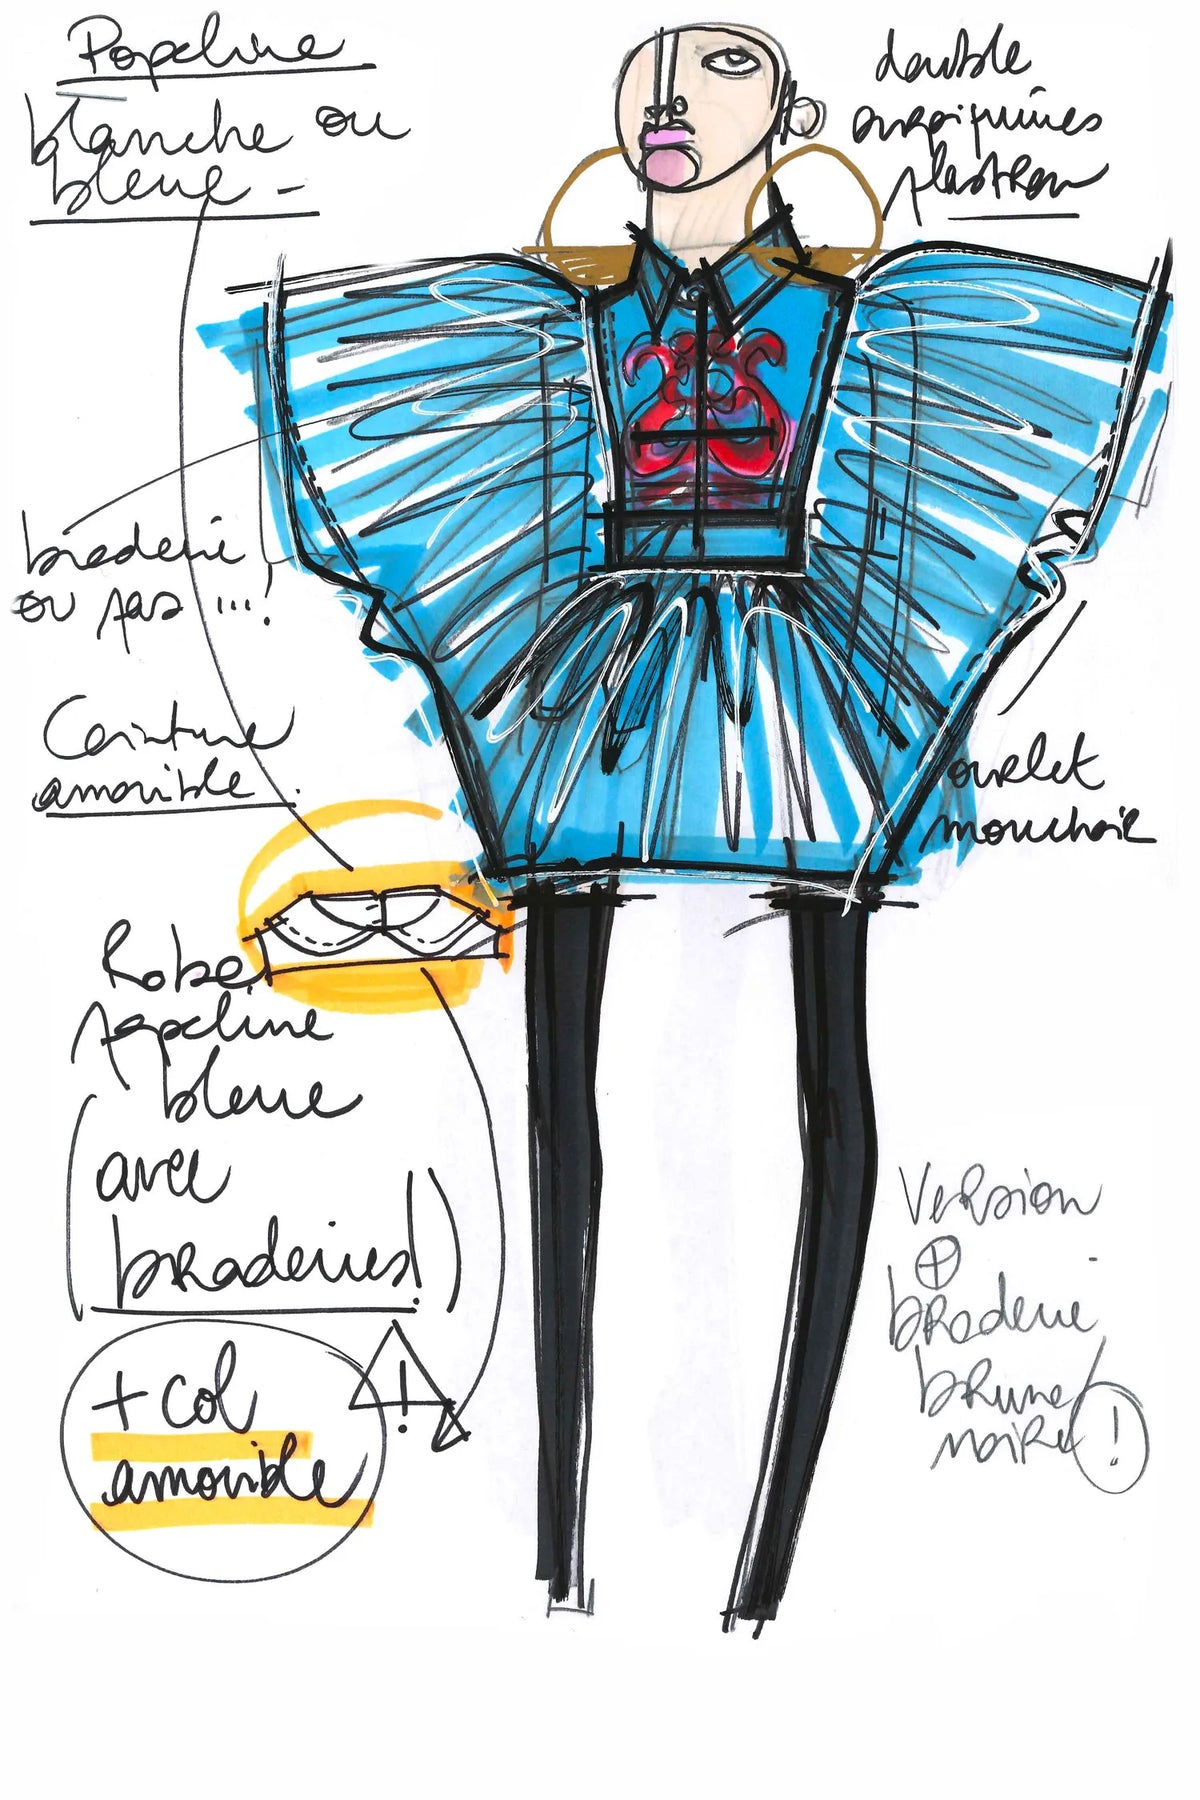 Popeline
blanche ou
bleue -
double
surpiqûres
plastron
broderie
ou pas ...!
Ceinture
amovible.
ourlet
mouchoir
Robe
popeline
bleue
(avec
broderies!)
+ col
amovible
!
Version
+
broderie
brune
noire !